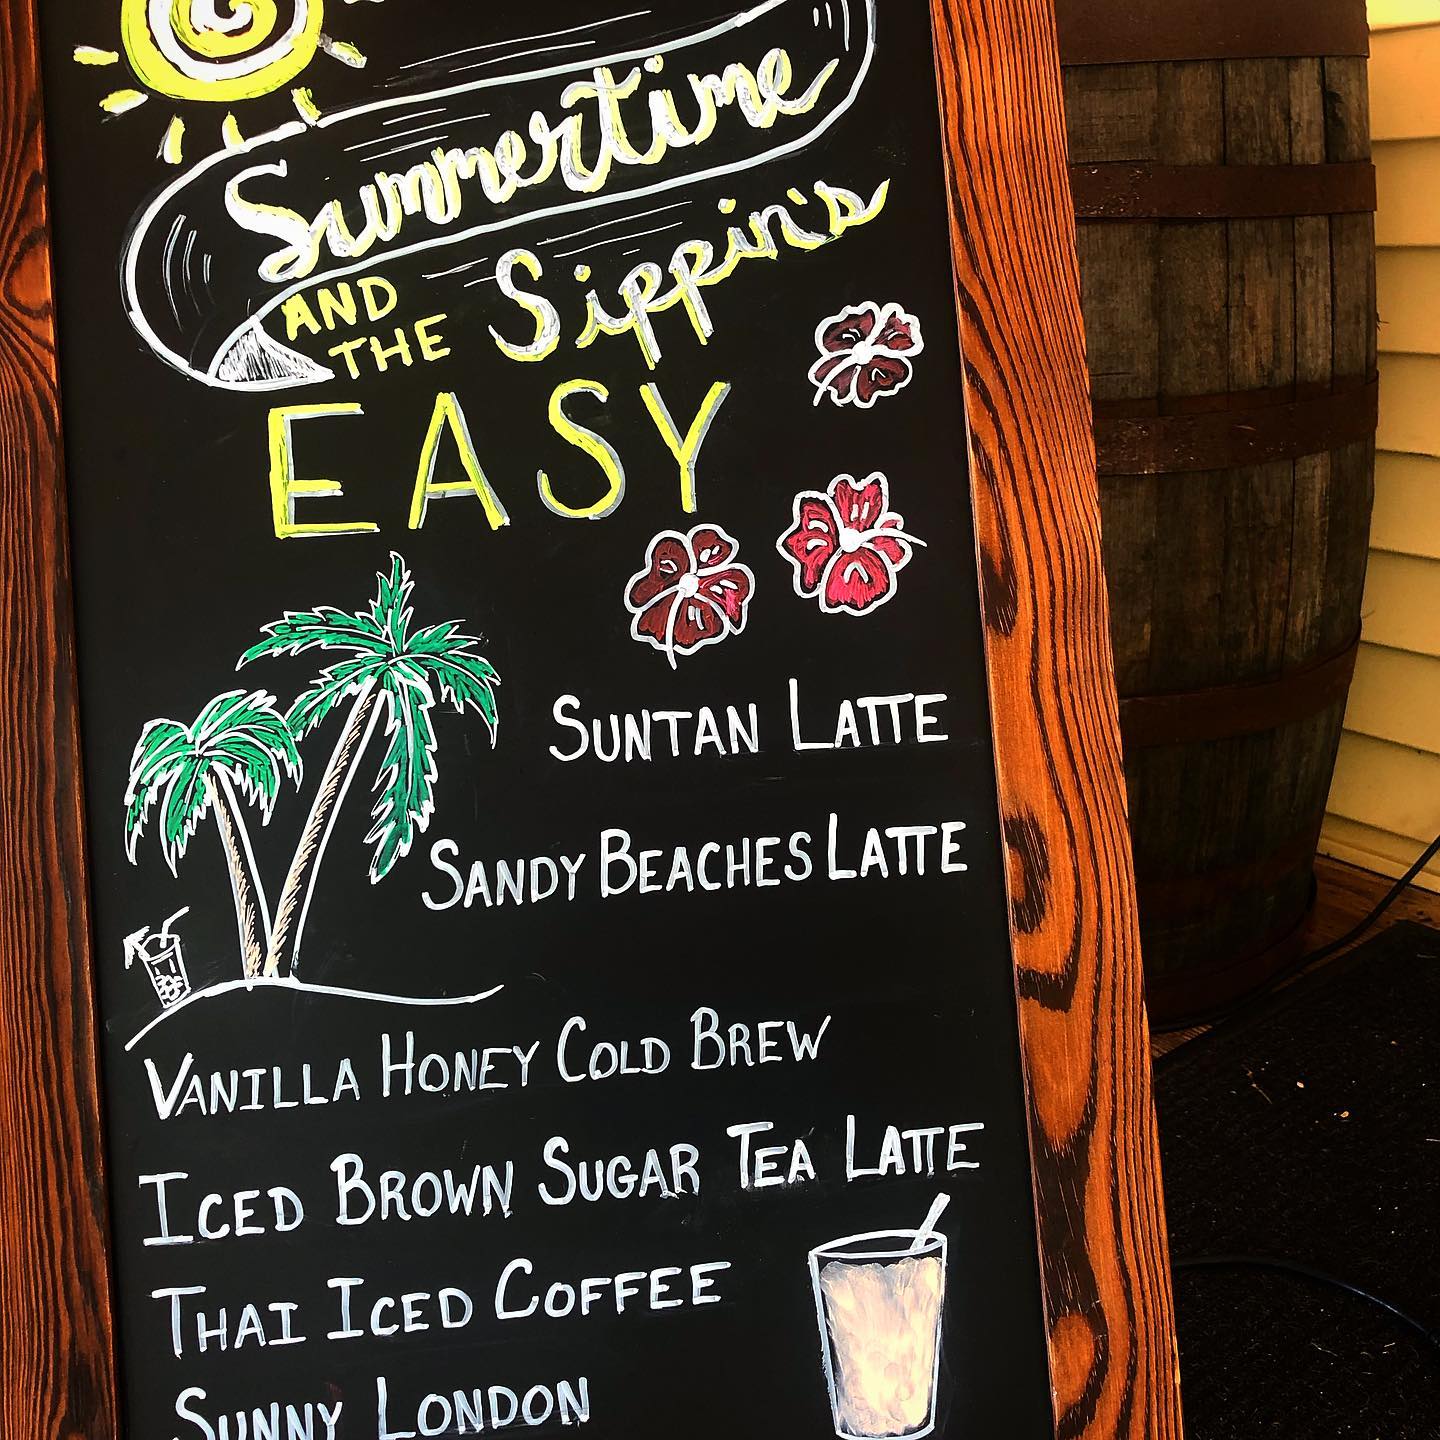 Summertime
AND
THE Sippin's
EASY
SUNTAN LATTE
SANDY BEACHES LATTE
VANILLA HONEY COLD BREW
ICED BROWN SUGAR TEA LATTE
THAI ICED COFFEE
SUNNY LONDON